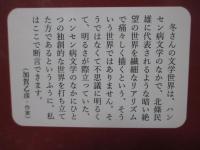 冬さんの文学世界は、ハン
セン病文学のなかで、北條民
雄に代表されるような暗い絶
望の世界を緻密なリアリズム
で痛々しく描くという、そう
いう世界ではありません。そ
うではなくて不思議に明るく
て、明るさが際立っていた、
ハンセン病文学のなかにひと
つの独創的な世界を打ち立て
た方であるというふうに、私
はここで断言できます。
（加賀乙彦 作家）